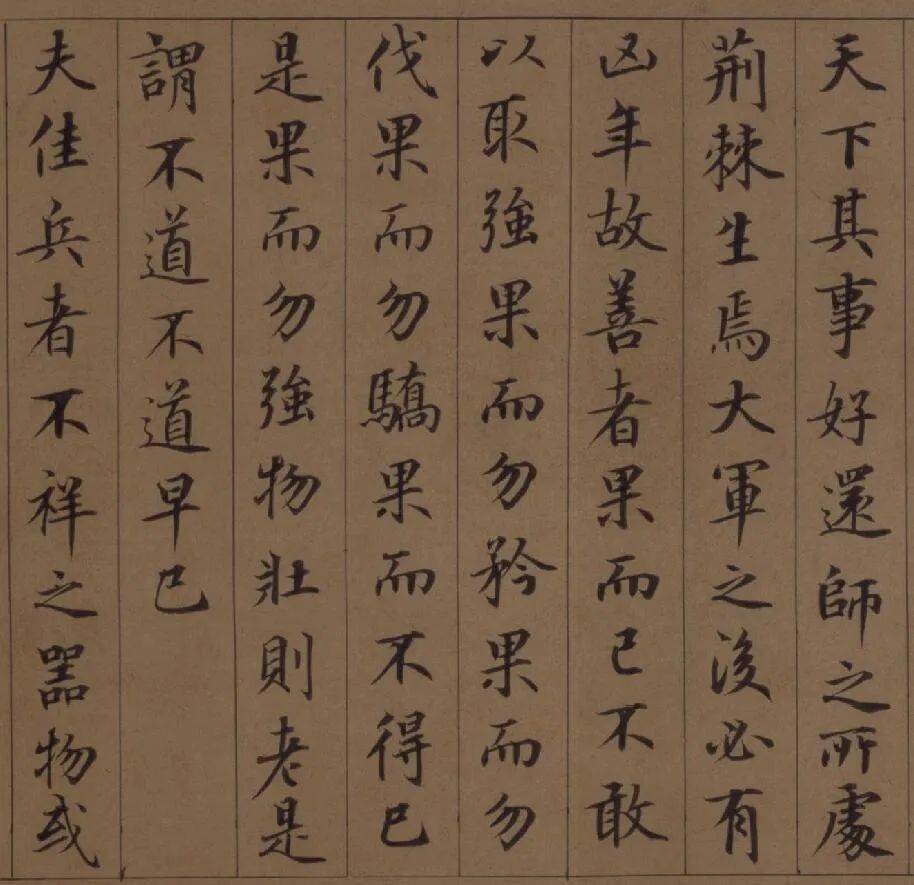 天下其事好還師之所處
荆棘生焉大軍之後必有
凶年故善者果而已不敢
以取強果而勿矜果而勿
伐果而勿驕果而不得已
是果而勿強物壯則老是
謂不道不道早已
夫佳兵者不祥之器物或